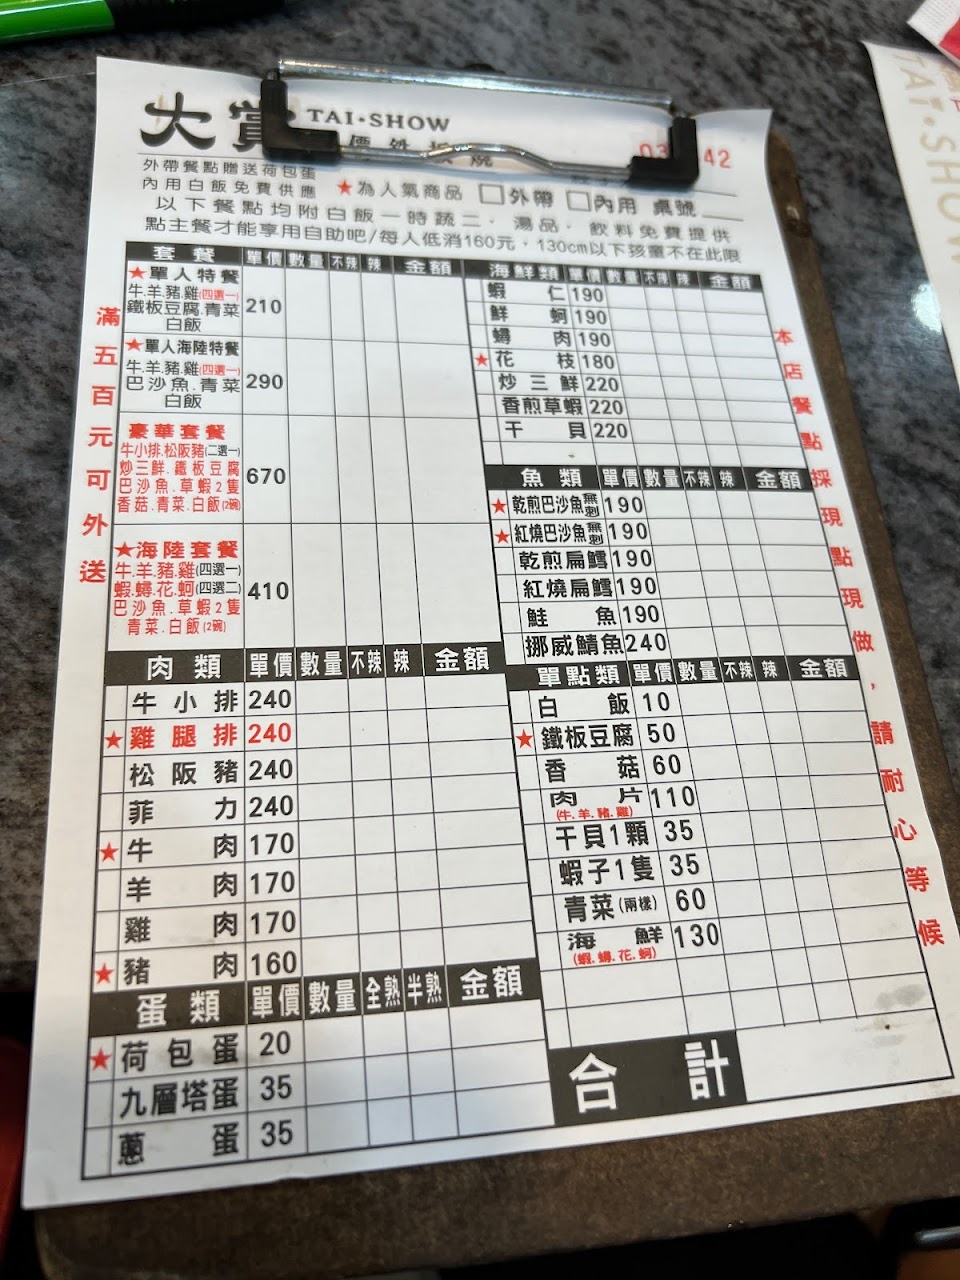 大賞 TAI·SHOW
外帶餐點贈送荷包蛋
內用白飯免費供應
★為人氣商品 □外帶 □內用 桌號
以下餐點均附白飯一時蔬二．湯品．飲料免費提供
點主餐才能享用自助吧/每人低消160元，130cm以下孩童不在此限
滿五百元可外送
套餐 單價 數量 不辣 辣 金額
★單人特餐
牛.羊.豬.雞(四選一)
鐵板豆腐.青菜
白飯
210
★單人海陸特餐
牛.羊.豬.雞(四選一)
巴沙魚.青菜
白飯
290
豪華套餐
牛小排.松阪豬(二選一)
炒三鮮.鐵板豆腐
巴沙魚.草蝦2隻
香菇.青菜.白飯(2碗)
670
★海陸套餐
牛.羊.豬.雞(四選一)
蝦.蟳.花.蚵(四選二)
巴沙魚.草蝦2隻
青菜.白飯(2碗)
410
肉類 單價 數量 不辣 辣 金額
牛小排 240
★雞腿排 240
松阪豬 240
菲力 240
★牛肉 170
羊肉 170
雞肉 170
★豬肉 160
蛋類 單價 數量 全熟 半熟 金額
★荷包蛋 20
九層塔蛋 35
蔥蛋 35
海鮮類 單價 數量 不辣 辣 金額
蝦仁 190
鮮蚵 190
蟳肉 190
★花枝 180
炒三鮮 220
香煎草蝦 220
干貝 220
魚類 單價 數量 不辣 辣 金額
★乾煎巴沙魚無刺 190
★紅燒巴沙魚無刺 190
乾煎扁鱈 190
紅燒扁鱈 190
鮭魚 190
挪威鯖魚 240
單點類 單價 數量 不辣 辣 金額
白飯 10
★鐵板豆腐 50
香菇 60
肉片 110
(牛.羊.豬.雞)
干貝1顆 35
蝦子1隻 35
青菜(兩樣) 60
海鮮 130
(蝦.蟳.花.蚵)
合計
本店餐點採現點現做，請耐心等候
TAI·SHOW